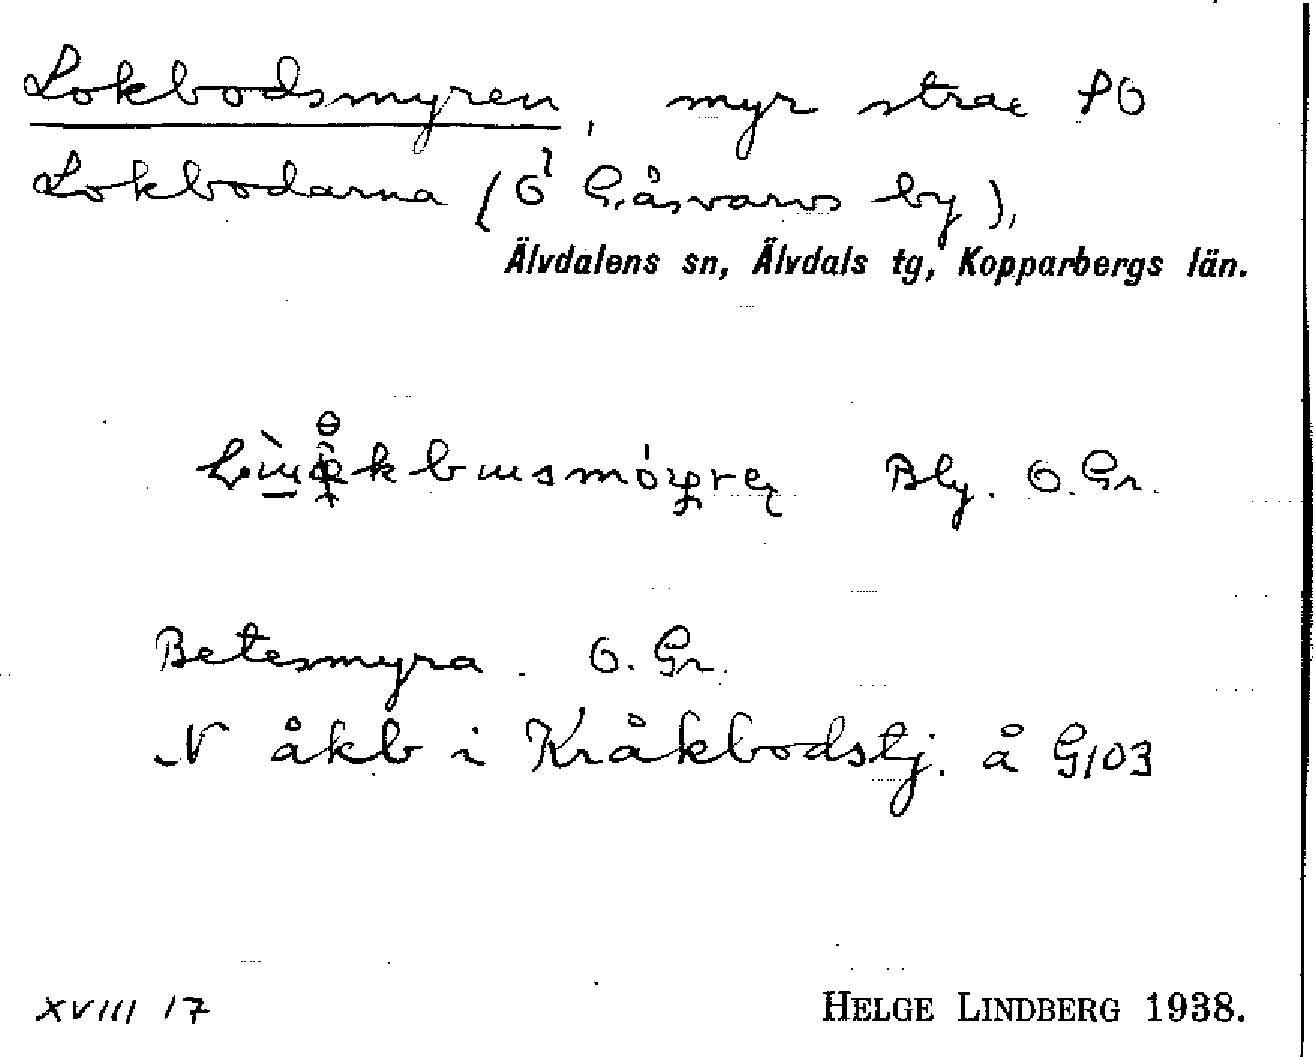 Lokbodsmyren, myr strax SO
Lokbodarna (O Gåsvarvs by),
Älvdalens sn, Älvdals tg, Kopparbergs län.
Bly. O. Gr.
Betesmyra. O. Gr.
N åkb i Kråkbodstj. å G103
XVIII 17
HELGE LINDBERG 1938.